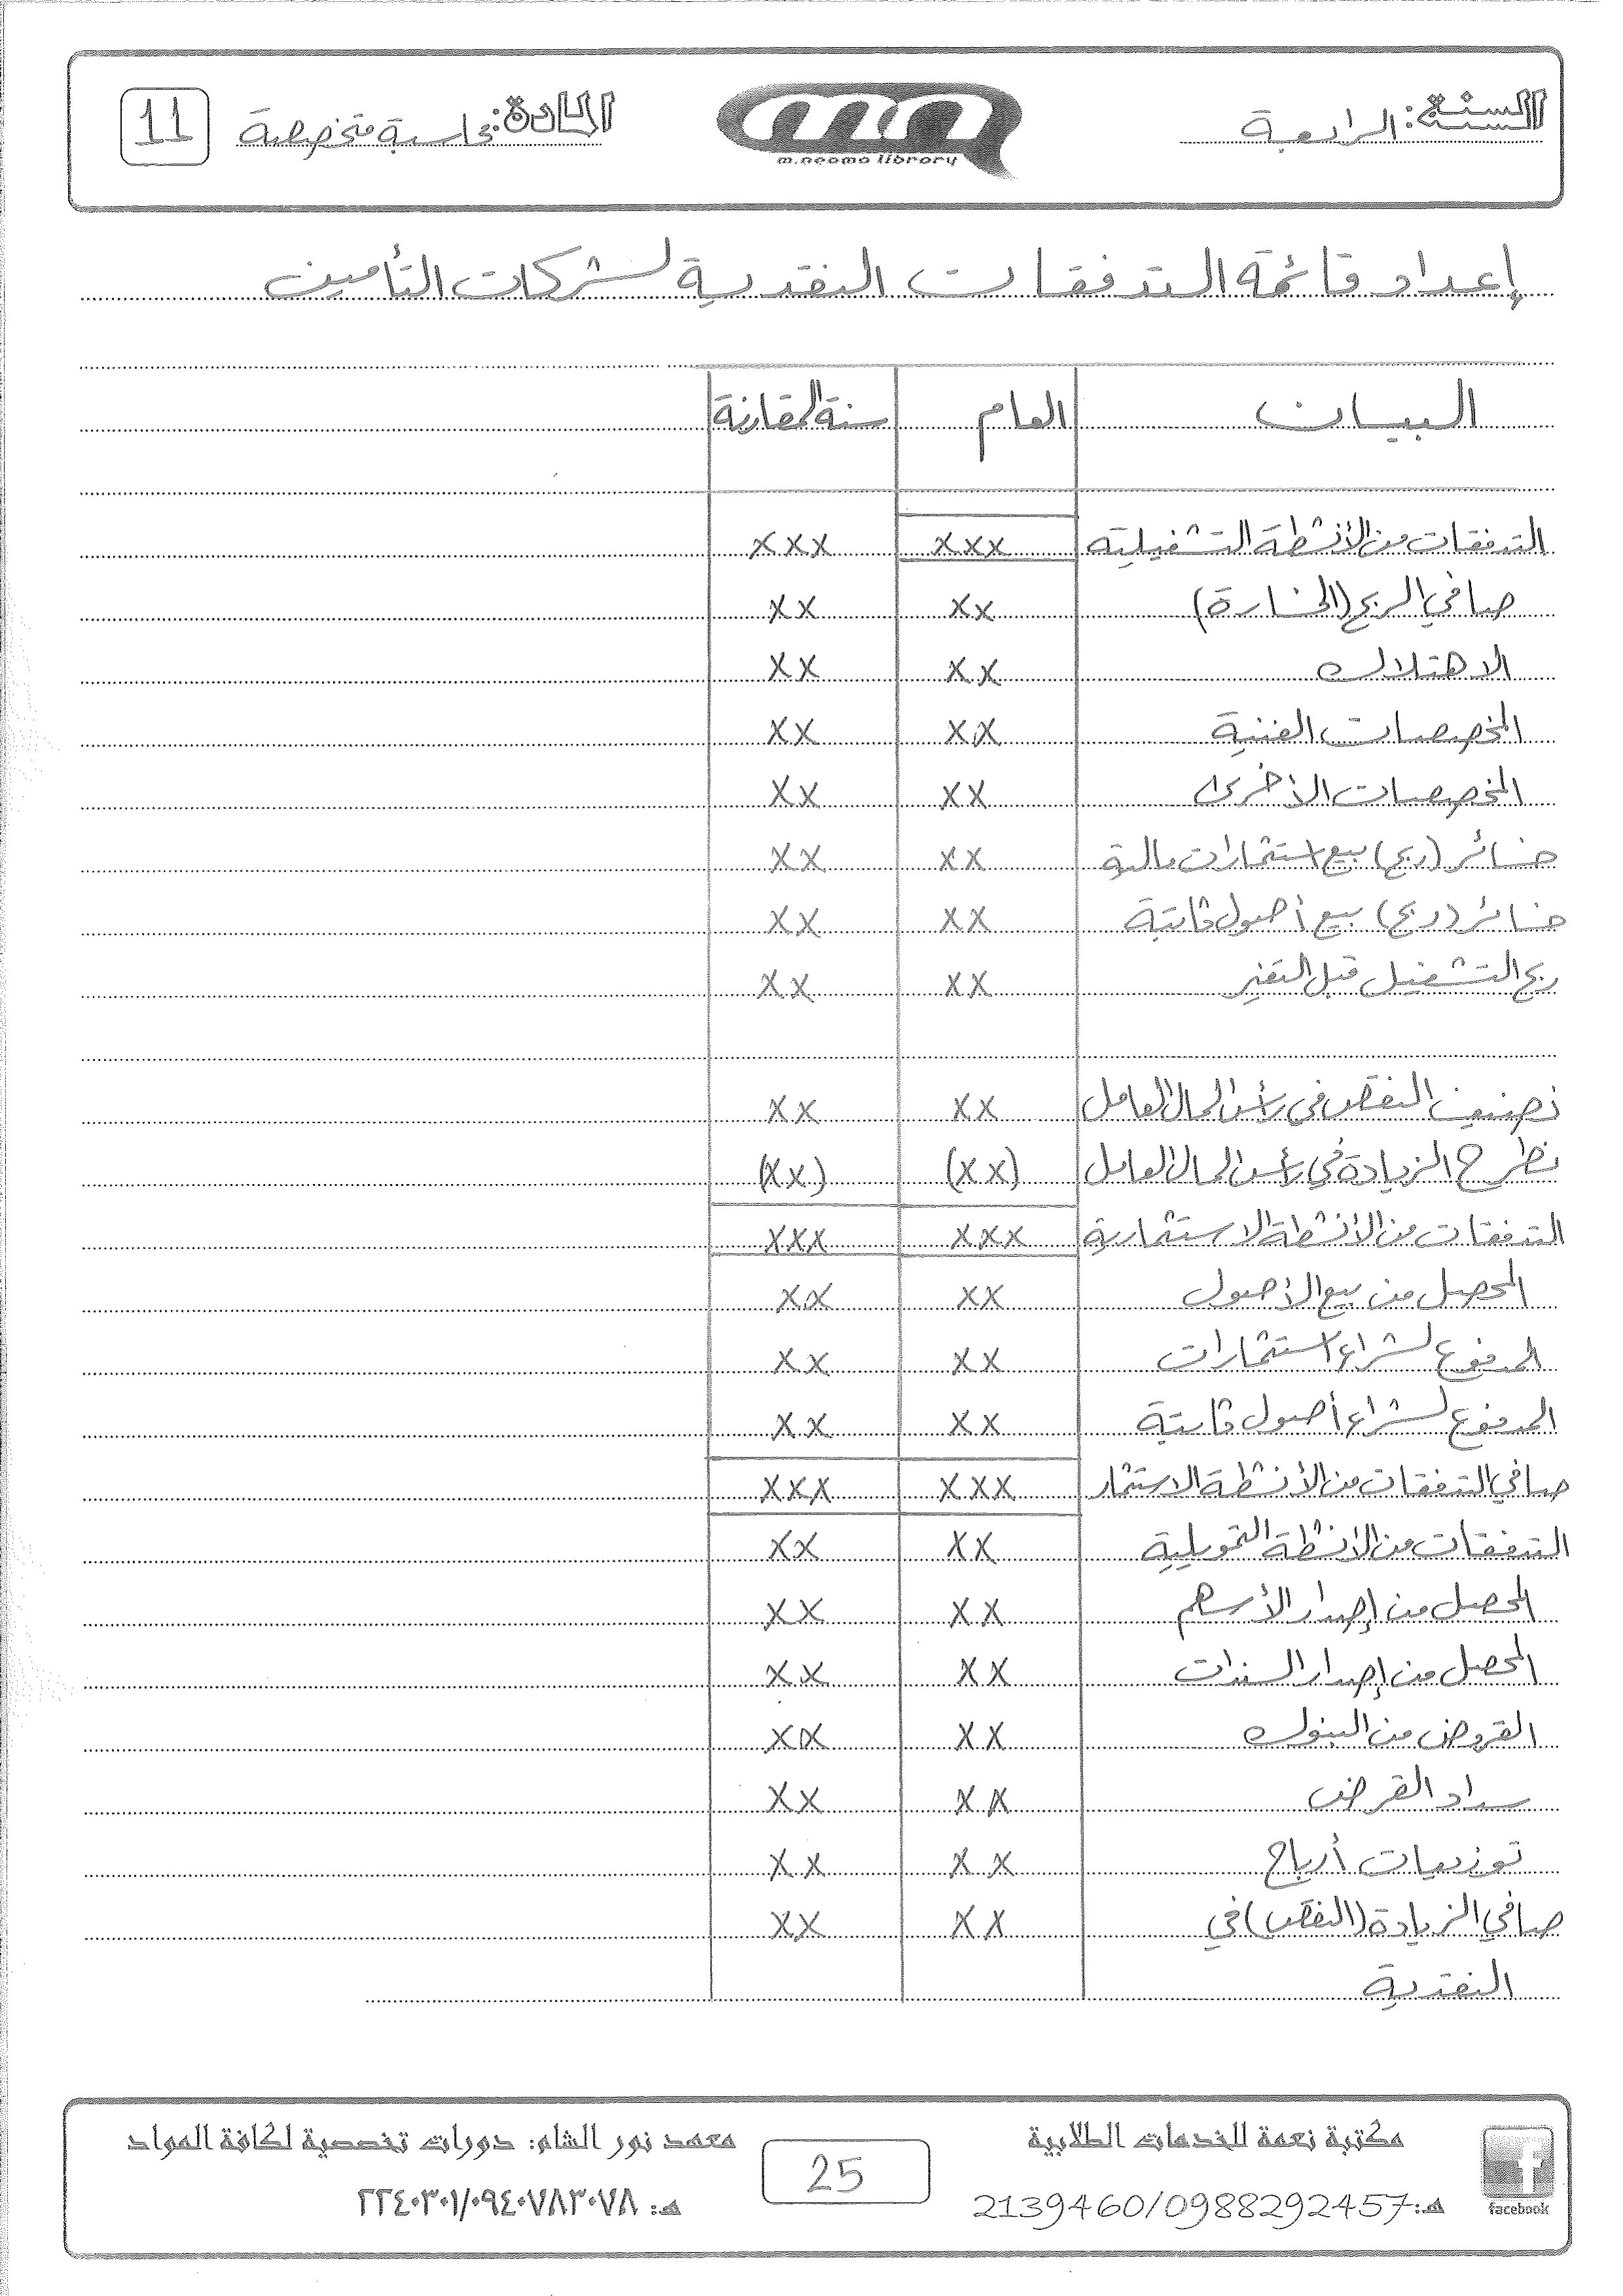 السنة: الرابعة
m.neama library
المادة: محاسبة متخصصة
11
إعداد قائمة التدفقات النقدية لشركات التأمين
البيان العام سنة المقارنة
التدفقات من الأنشطة التشغيلية xxx xxx
صافي الربح (الخسارة) xx xx
الاهتلاك xx xx
المخصصات الفنية xx xx
المخصصات الأخرى xx xx
خسائر (ربح) بيع استثمارات مالية xx xx
خسائر (ربح) بيع أصول ثابتة xx xx
ربح التشغيل قبل التغير xx xx
نضيف النقص في رأس المال العامل xx xx
نطرح الزيادة في رأس المال العامل (xx) (xx)
التدفقات من الأنشطة الاستثمارية xxx xxx
المحصل من بيع الأصول xx xx
المدفوع لشراء استثمارات xx xx
المدفوع لشراء أصول ثابتة xx xx
صافي التدفقات من الأنشطة الاستثمار xxx xxx
التدفقات من الأنشطة التمويلية xx xx
المحصل من إصدار الأسهم xx xx
المحصل من إصدار السندات xx xx
القروض من البنوك xx xx
سداد القرض xx xx
توزيعات أرباح xx xx
صافي الزيادة (النقص) في xx xx
النقدية
مكتبة نعمة للخدمات الطلابية
هـ: 2139460/0988292457
facebook
25
معهد نور الشام: دورات تخصصية لكافة المواد
هـ: ٢٢٤٠٣٠١/٠٩٤٠٧٨٣٠٧٨